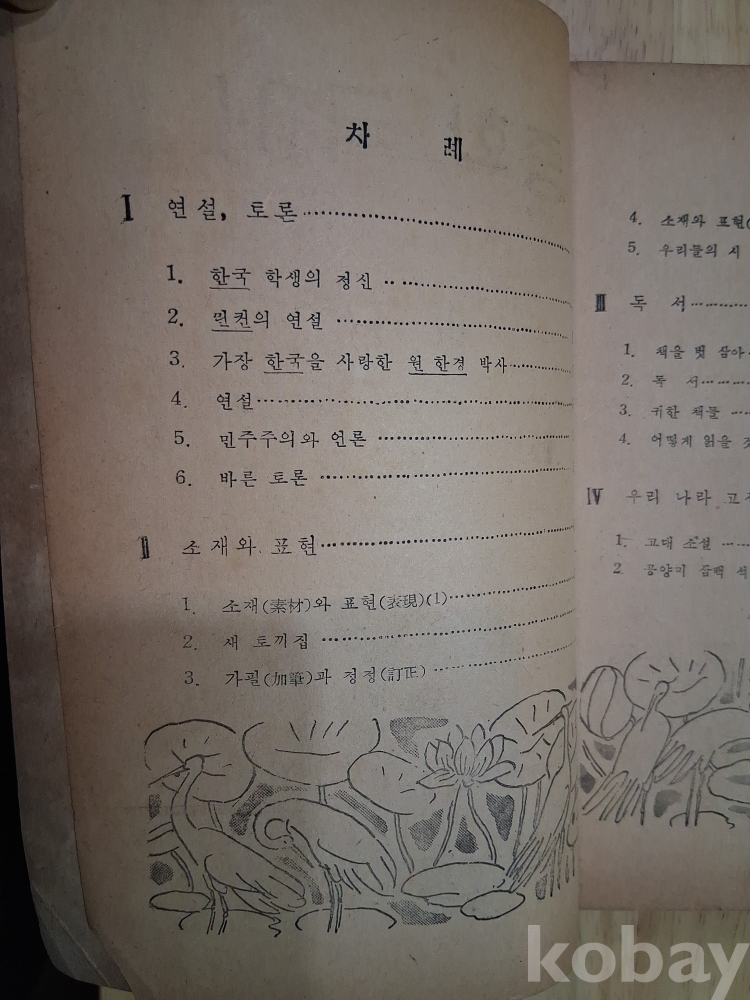 차 례
I 연설, 토론
1. 한국 학생의 정신
2. 링컨의 연설
3. 가장 한국을 사랑한 원 한경 박사
4. 연설
5. 민주주의와 언론
6. 바른 토론
II 소재와 표현
1. 소재(素材)와 표현(表現)(1)
2. 새 토끼집
3. 가필(加筆)과 정정(訂正)
4. 소재와 표현(
5. 우리들의 시
III 독 서
1. 책을 벗 삼아
2. 독 서
3. 귀한 책들
4. 어떻게 읽을 것
IV 우리 나라 고
1. 고대 소설
2 공양미 삼백 석
kobay